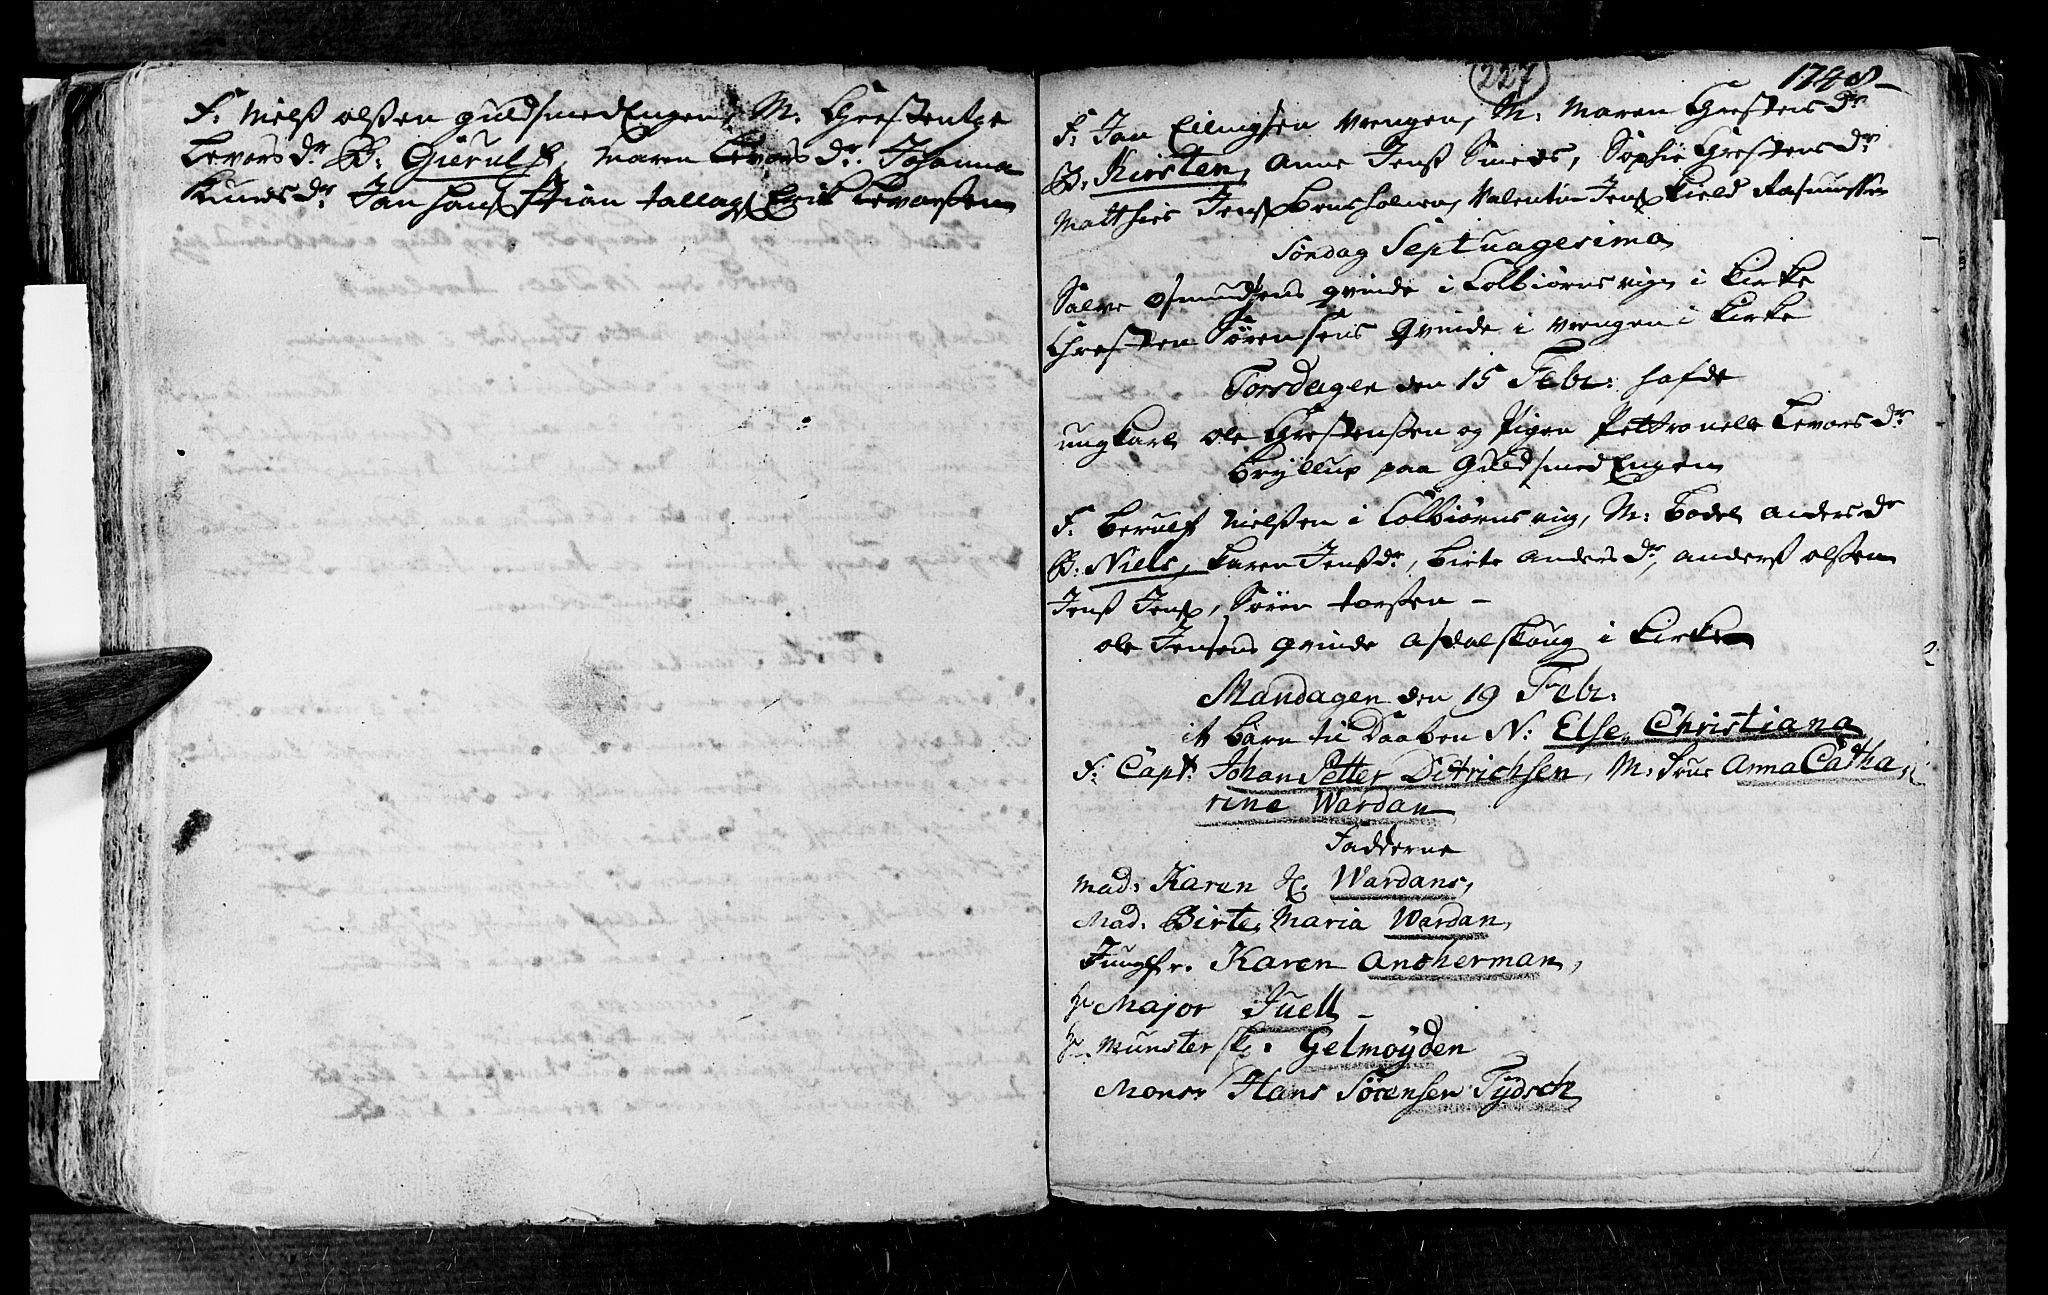 F: Nielß olßen guldsmedEngen, M: Chrestentze
Levors dr B: Gierulf, Maren Levors dr. Johanna
Knuds dr Jan Hanß Stian tallagß Erik Levorßen
227 1748
F: Jan Eilmyßen vrengen, M: Maren Chrestens dr
B: Kirsten, Anne Jenß Smeds, Sophie Chrestens dr
Matthies Jenß Valentin Jenß Kield Rasmussen
Søndag Septuagesima
Salve osmundsens qvinde i Colbiørnsvig i Kirke
Chresten Sørensens qvinde i vrengen i Kirke
Torsdagen den 15 Febr: hafde
ungkarl ole Chrestenßen og Pigen Pettronelle Levors dr
Bryllup paa GuldsmedEngen
F: Berulf Nielßen i Colbiørnsvig, M: Bodel anders dr
B: Niels, Karen Jenß dr, Birte Anders dr, anders olßen
Jenß Jenß, Søren torßen –
ole Jensens qvinde Asdalskoug i Kirke
Mandagen den 19 Febr:
it barn til Daaben N: Else Christiana
F: Capt: Johan Petter Ditrichsen, M: frue Anna Catha
rine Wardan
Fadderne
Mad: Karen H. Wardans,
Mad. Birte Maria Wardan,
Jungfr. Karen Ancherman,
Hr Major Juell –
Hr Munster sk: Gelmøyden
Monsr Hans Sørensen Tydsch